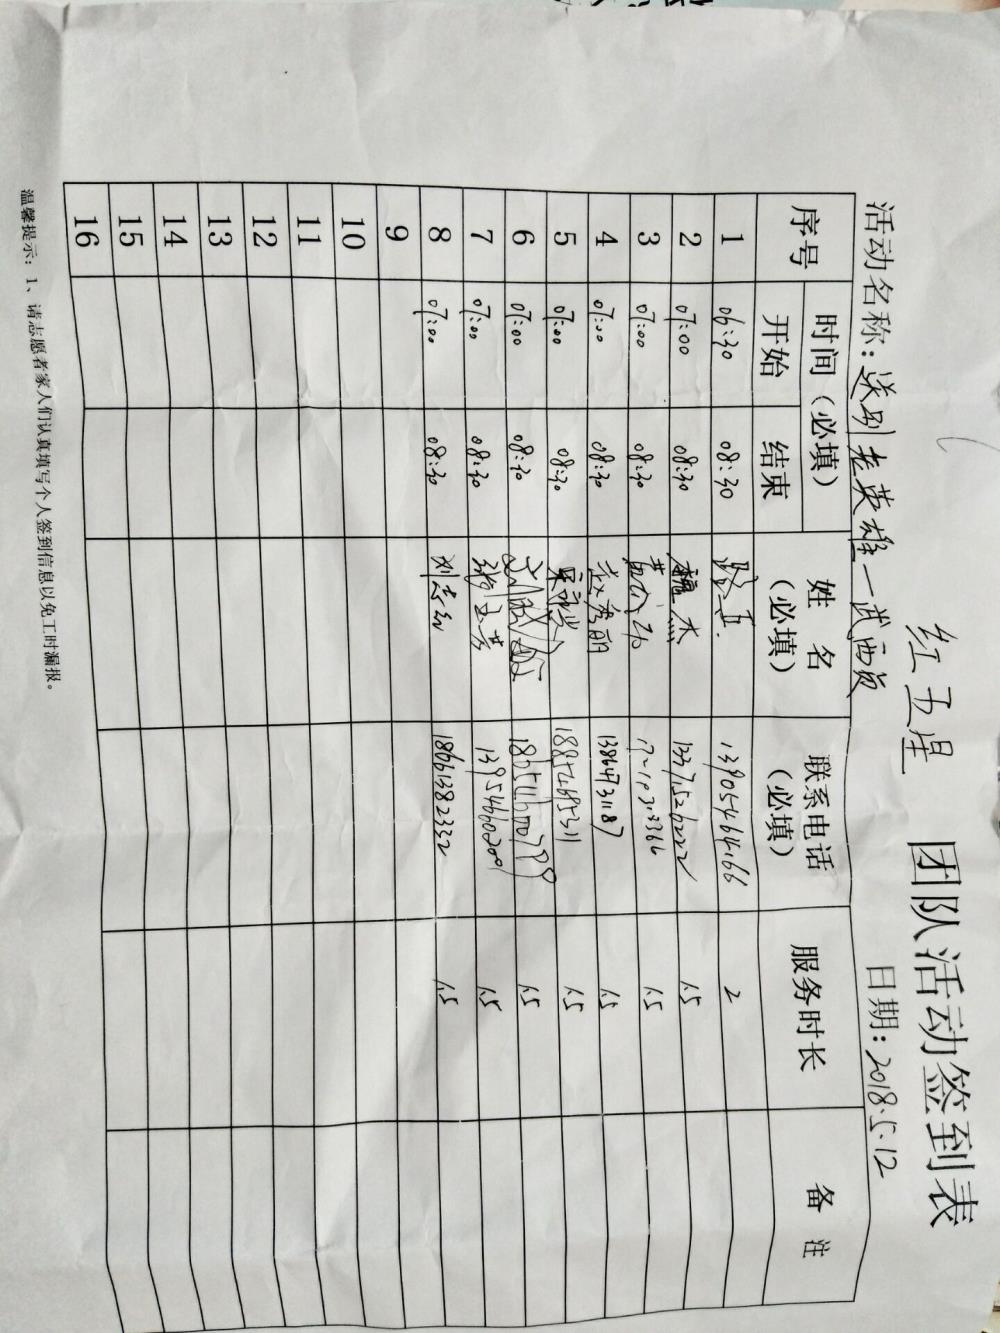 红五星 团队活动签到表
活动名称：送别老英雄一武西员 日期：2018.5.12
序号 时间（必填） 姓名（必填） 联系电话（必填） 服务时长 备注
开始 结束
1 06:30 08:30 13905464166 2
2 07:00 08:30 魏杰 13371526222 1.5
3 07:00 08:30 1.5
4 07:00 08:30 赵秀丽 13864731187 1.5
5 07:00 08:30 1.5
6 07:00 08:30 1.5
7 07:00 08:30 1.5
8 07:00 08:30 刘志红 18661382332 1.5
9
10
11
12
13
14
15
16
温馨提示：1、请志愿者家人们认真填写个人签到信息以免工时漏报。